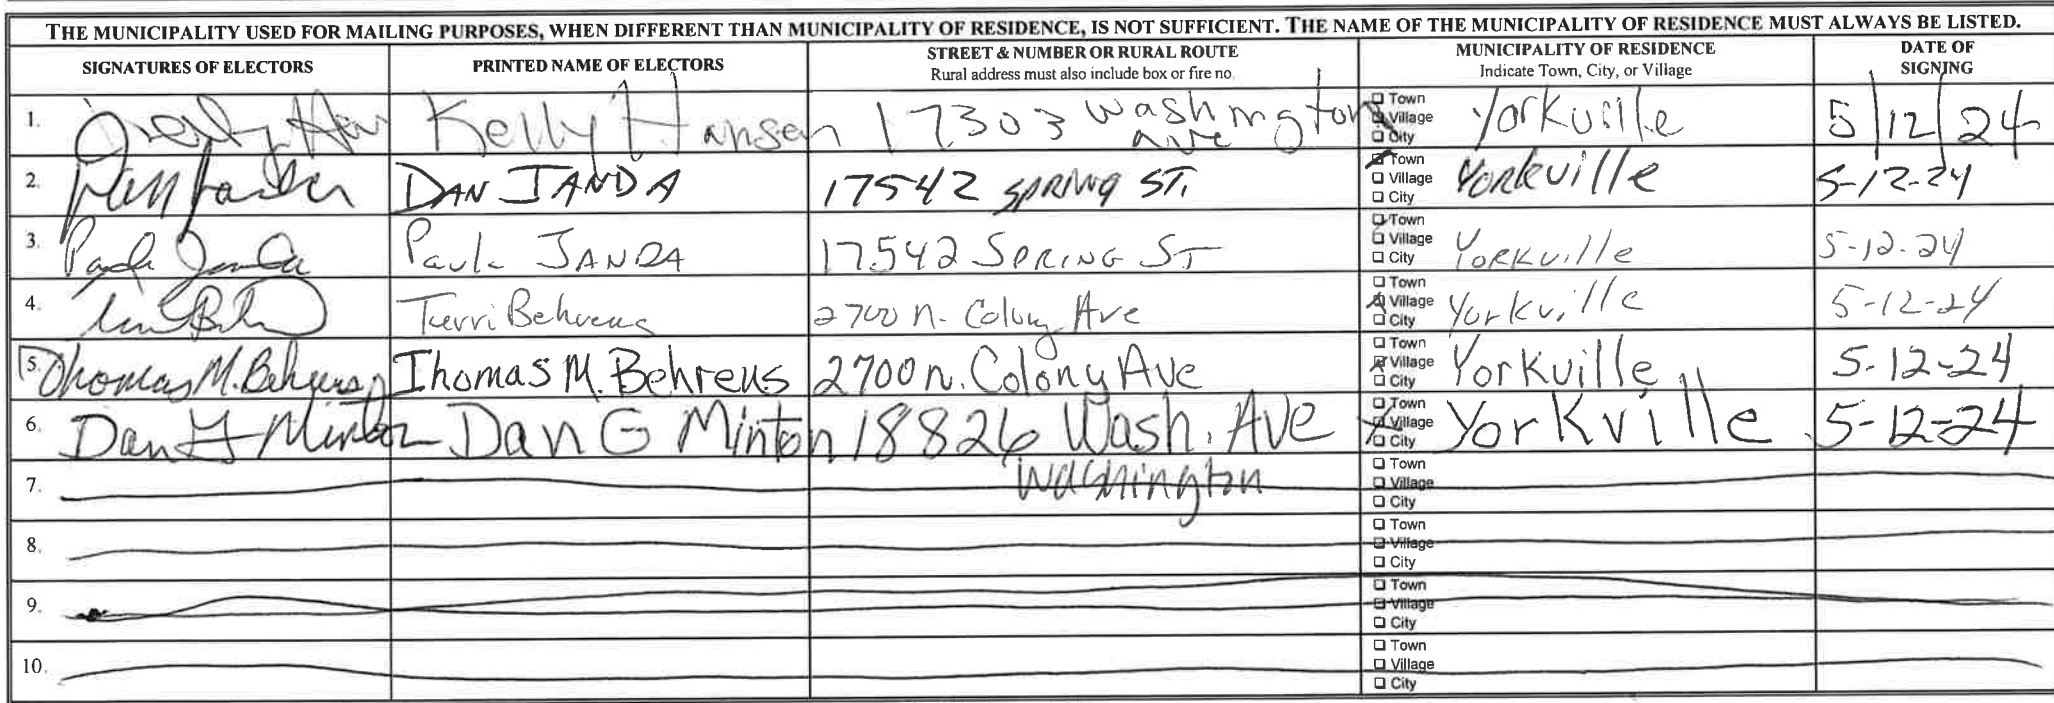 THE MUNICIPALITY USED FOR MAILING PURPOSES, WHEN DIFFERENT THAN MUNICIPALITY OF RESIDENCE, IS NOT SUFFICIENT. THE NAME OF THE MUNICIPALITY OF RESIDENCE MUST ALWAYS BE LISTED.
SIGNATURES OF ELECTORS
PRINTED NAME OF ELECTORS
STREET & NUMBER OR RURAL ROUTE
Rural address must also include box or fire no.
MUNICIPALITY OF RESIDENCE
Indicate Town, City, or Village
DATE OF
SIGNING
1. Kelly Hansen 17303 Washington Ave Town Village City Yorkville 5/12/24
2. Dan Janda DAN JANDA 17542 SPRING ST. Town Village City Yorkville 5-12-24
3. Paula Janda Paula JANDA 17542 SPRING ST Town Village City Yorkville 5-12-24
4. Terri Behrens 2700 N. Colony Ave Town Village City Yorkville 5-12-24
5. Thomas M. Behrens Thomas M. Behrens 2700 N. Colony Ave Town Village City Yorkville 5-12-24
6. Dan G Minton Dan G Minton 18826 Wash. Ave Town Village City Yorkville 5-12-24
7. Washington Town Village City
8. Town Village City
9. Town Village City
10. Town Village City